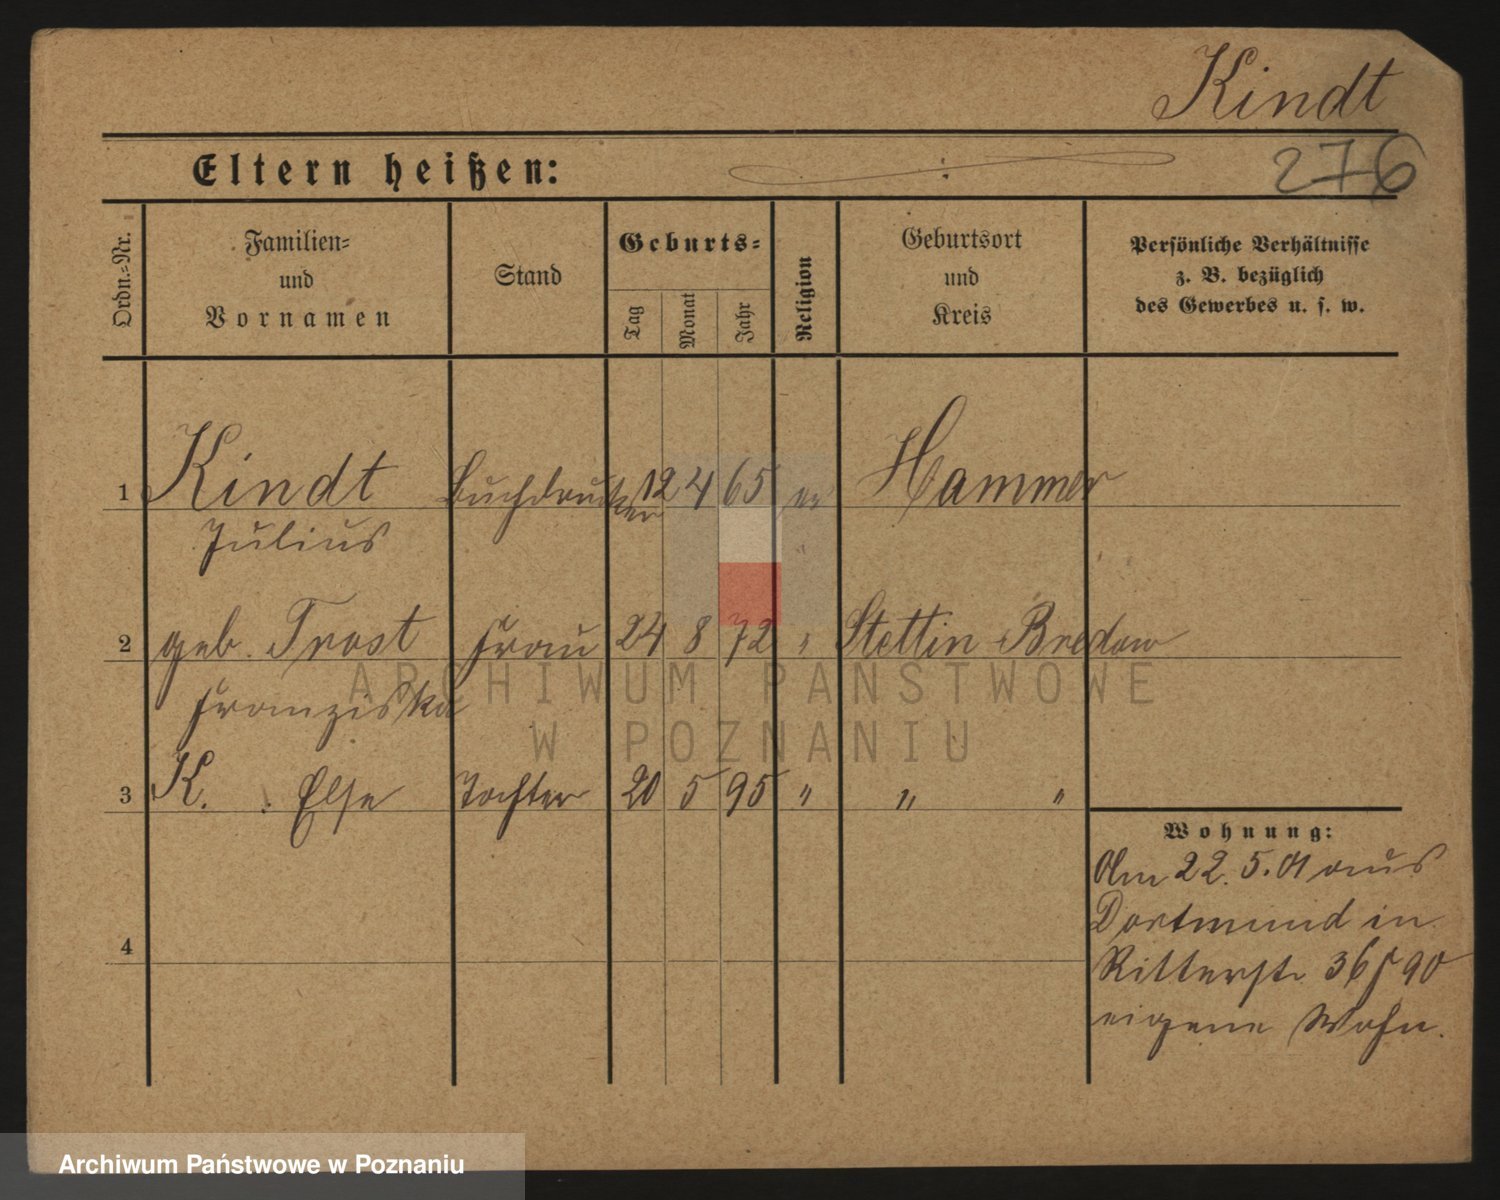 Kindt
276
Eltern heißen:
Ordn.-Nr.
Familien-
und
Vornamen
Stand
Geburts-
Tag
Monat
Jahr
Religion
Geburtsort
und
Kreis
Persönliche Verhältnisse
z. B. bezüglich
des Gewerbes u. s. w.
1 Kindt Buchdrucker 12 4 65 ev Hammer
Julius
2 geb. Trost Frau 24 8 72 " Stettin Bredow
Franziska
3 K. Else Tochter 20 5 95 " " "
4
Wohnung:
Am 22.5.01 aus
Dortmund in
Ritterstr 36
eigene Wohn.
ARCHIWUM PAŃSTWOWE
W POZNANIU
Archiwum Państwowe w Poznaniu